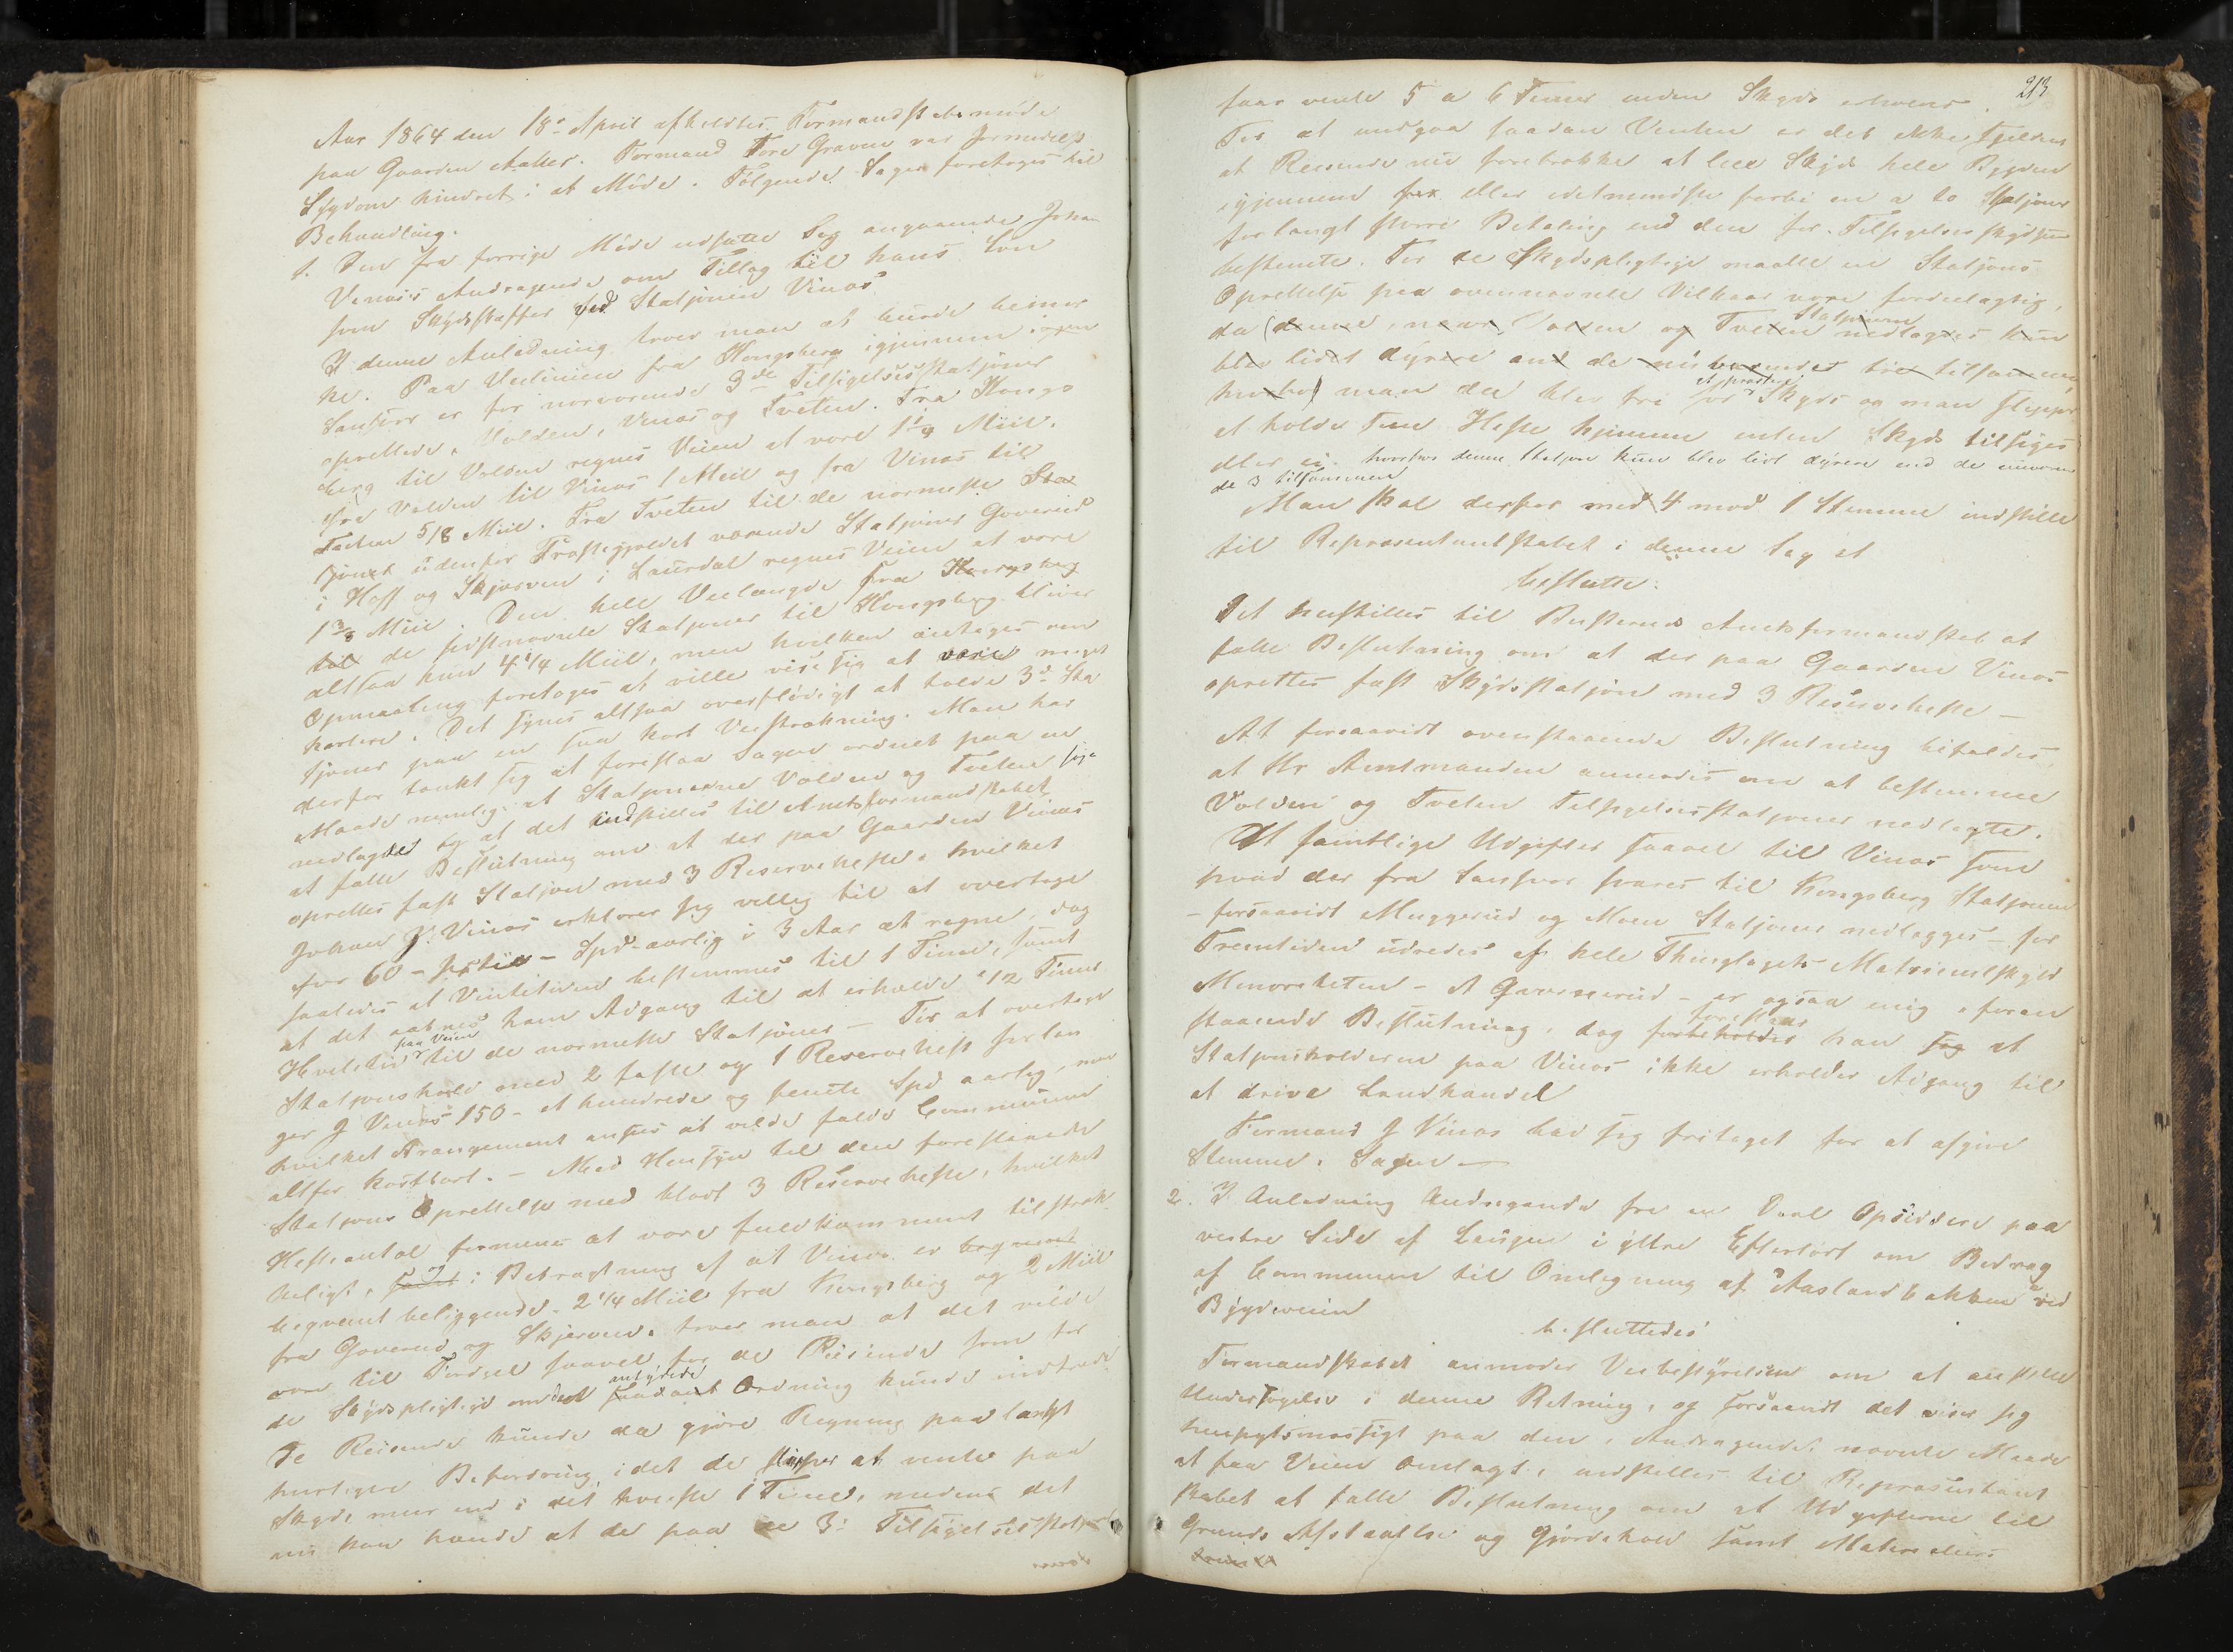 Aar 1864 den 18de April afholdtes Formandskabsmöde
paa Gaarden Aaker. Formand Tore Graven var formedelst
Sygdom hindret i at Möde. Fölgende Sager foretoges til
Behandling.
1. Den fra forrige Möde udsatte Sag angaaende Johan
Vinæs's Andragende om Tillæg til hans Lön
som Skydsskaffer ved Stasjonen Vinæs.
I denne Anledning troer man at burde bemær
ke. Paa Veilinien fra Kongsberg igjennem
Sansver er for nærværende 3de Tilsigelsesstasjoner
oprettede, Volden, Vinæs og Tveten. Fra Kongs
berg til Volden regnes Veien at være 1 1/4 Miil.
fra Volden til Vinæs 1 Miil og fra Vinæs til
Tveten 5/8 Miil. Fra Tveten til de nærmeste Sta
sjoner udenfor Præstegjældet værende Stasjoner Goverud
i Hoff og Skjerven i Laurdal regnes Veien at være
1 3/8 Miil. Den hele Veilængde fra Kongsberg
til de sidstnævnte Stasjoner til Kongsberg bliver
altsaa kun 4 1/4 Miil, men hvilken antages ved
Opmaaling foretages at ville vise sig at være meget
kortere. Det synes altsaa overflödigt at holde 3de Sta
sjoner paa en saa kort Veistrækning. Man har
derfor tænkt sig at foreslaa Sagen ordnet paa en
Maade nemlig: at Stasjonerne Volden og Tveten
nedlagdes og at det indstilles til Amtsformandskabet
at fatte Beslutning om at der paa Gaarden Vinæs
oprettes fast Stasjon med 3 Reserveheste. hvilket
Johan J. Vinæs erklærer sig villig til at overtage
for 60 - - Spd aarlig i 3 Aar at regne, dog
saaledes at Ventetiden bestemmes til 1 Time, samt
at det aabnes ham Adgang til at erholde 1/2 Times
Hviletid paa Veien til de nærmeste Stasjoner - For at overtage
Stasjonshold med 2 faste og 1 Reservehest forlan
ger J Vinæs 150 - et hundrede og femti Spd aarlig,
hvilket Arangement ansees at vilde falde Communen
altfor kostbart. - Med Hensyn til den foreslaaede
Stasjons Oprettelse med blot 3 Reserveheste, hvilket
Hesteantal formenes at være fuldkomment tilstræk
keligt, samt i Betragtning af at Vinæs er beqvemt
beqvemt beliggende. 2 1/4 Miil fra Kongsberg og 2 Miil
fra Goverud og Skjerven. troer man at det vilde
være til Fordeel saavel for de Reisende som for
de Skydspligtige om det antydede saadant Ordning kunde indtræde
De Reisende kunde da gjöre Regning paa langt
hurtigere Befordring, idet de slipper at vente paa
Skyds mere end i det höieste 1 Time, medens det
nu kan hænde at de paa de 3de Tilsigelsesstasjoner
213
faar vente 5 a 6 Timer inden Skyds erholdes.
For at undgaa saadan Venten er det ikke sjelden
at Reisende nu foretrække at leie Skyds hele Bygden
igjennem for eller idetmindste forbi en a to Stasjoner
for langt större Betaling end den for Tilsigelsesskydsen
bestemte. For de Skydspligtige maatte en Stasjons
Oprettelse paa ovennævnte Vilkaar være fordeelagtig,
da (denne, naar Volden og Tveten Stasjoner nedlagdes kun
blev lidet dyrere end de nuværende tre tilsammen,
hvorhos man da blev fri for at præstere Skyds og man slipper
at holde sine Heste hjemme enten Skyds tilsiges
eller ei. hvorhos denne Stasjon kun blev lidt dyrere end de nuværen
de 3 tilsammen
Man skal derfor med 4 mod 1 Stemme indstille
til Repræsentantskabet i denne Sag at
beslutte:
Det henstilles til Buskeruds Amtsformandskab at
fatte Beslutning om at der paa Gaarden Vinæs
oprettes fast Skydsstasjon med 3 Reserveheste -
At forsaavidt ovenstaaende Beslutning bifaldes,
at Hr Amtmanden anmodes om at bestemme
Volden og Tveten Tilsigelsesstasjoner nedlagte.
At samtlige Udgifter saavel til Vinæs som
hvad der fra Sansver svares til Kongsberg Stasjoner
- forsaavidt Muggerud og Moen Stasjoner nedlægges - for
Fremtiden udredes af hele Thinglagets Matrikulskyld
Minoriteten - A Qværnerud - er ogsaa enig i foran
staaende Beslutning, dog forbeholder foreslaar han sig at
Stasjonsholderen paa Vinæs ikke erholder Adgang til
at drive Landhandel
Formand J Vinæs har sig fritaget for at afgive
Stemme i Sagen -
2. I Anledning Andragende fra en Deel Opsiddere paa
vestre Side af Laugen i yttre Eftelöst om Bidrag
af Communen til Omlægning af Aaslandbakken ved
Bygdeveien
besluttedes
Formandskabet anmoder Veibestyrelsen om at anstille
Undersögelse i denne Retning, og forsaavidt det viser sig
hensigtsmæssigt paa den i Andragendet nævnte Maade
at faa Veien omlagt, indstilles til Repræsentant
skabet at fatte Beslutning om at Udgifterne til
Grunds Afstaaelse og Gjerdehold samt Materialiers